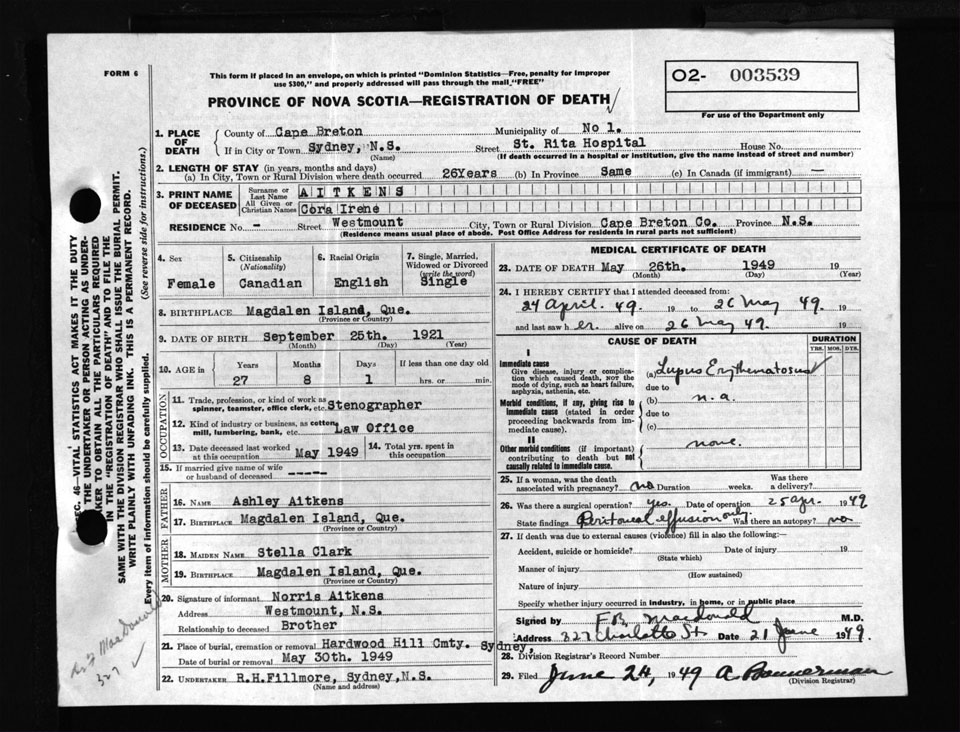 FORM 6
This form if placed in an envelope, on which is printed "Dominion Statistics—Free, penalty for improper
use $300," and properly addressed will pass through the mail "FREE"
O2- 003539
For use of the Department only
PROVINCE OF NOVA SCOTIA—REGISTRATION OF DEATH
1. PLACE OF DEATH
County of Cape Breton Municipality of No 1.
If in City or Town Sydney, N.S. Street St. Rita Hospital House No.
(Name) (If death occurred in a hospital or institution, give the name instead of street and number)
2. LENGTH OF STAY (in years, months and days)
(a) In City, Town or Rural Division where death occurred 26Years (b) In Province Same (c) In Canada (if immigrant) —
3. PRINT NAME OF DECEASED
Surname or Last Name AITKENS
All Given or Christian Names Cora Irene
RESIDENCE No. - Street Westmount City, Town or Rural Division Cape Breton Co. Province N.S.
(Residence means usual place of abode. Post Office Address for residents in rural parts not sufficient)
4. Sex
Female
5. Citizenship (Nationality)
Canadian
6. Racial Origin
English
7. Single, Married, Widowed or Divorced (write the word)
Single
8. BIRTHPLACE Magdalen Island, Que.
(Province or Country)
9. DATE OF BIRTH September 25th. 1921
(Month) (Day) (Year)
10. AGE in Years Months Days If less than one day old
27 8 1 hrs. or min.
OCCUPATION
11. Trade, profession, or kind of work as
spinner, teamster, office clerk, etc. Stenographer
12. Kind of industry or business, as cotton
mill, lumbering, bank, etc. Law Office
13. Date deceased last worked
at this occupation May 1949
14. Total yrs. spent in
this occupation
15. If married give name of wife
or husband of deceased -----
FATHER
16. NAME Ashley Aitkens
17. BIRTHPLACE Magdalen Island, Que.
(Province or Country)
MOTHER
18. MAIDEN NAME Stella Clark
19. BIRTHPLACE Magdalen Island, Que.
(Province or Country)
20. Signature of informant Norris Aitkens
Address Westmount, N.S.
Relationship to deceased Brother
21. Place of burial, cremation or removal Hardwood Hill Cmty. Sydney,
Date of burial or removal May 30th. 1949
22. UNDERTAKER R.H.Fillmore, Sydney,N.S.
(Name and address)
MEDICAL CERTIFICATE OF DEATH
23. DATE OF DEATH May 26th. 1949 19
(Month) (Day) (Year)
24. I HEREBY CERTIFY that I attended deceased from:
24 April. 49. 19 to 26 May 49. 19
and last saw h er. alive on 26 May 49. 19
CAUSE OF DEATH
DURATION
YRS. MOS. DYS.
I
Immediate cause
Give disease, injury or complication which caused death, NOT the mode of dying, such as heart failure, asphyxia, asthenia, etc.
(a) Lupus Erythematosus
due to
Morbid conditions, if any, giving rise to immediate cause (stated in order proceeding backwards from immediate cause).
(b) n.a.
due to
(c)
II
Other morbid conditions (if important) contributing to death but not causally related to immediate cause.
none.
25. If a woman, was the death
associated with pregnancy? no Duration weeks. Was there a delivery?
26. Was there a surgical operation? yes. Date of operation 25 apr. 1949
State findings Peritoneal effusion only. Was there an autopsy? no
27. If death was due to external causes (violence) fill in also the following:—
Accident, suicide or homicide? Date of injury 19
(State which)
Manner of injury
(How sustained)
Nature of injury
Specify whether injury occurred in industry, in home, or in public place
Signed by F.B. Macdonald M.D.
Address 327 Charlotte St Date 21 June 1949.
28. Division Registrar's Record Number
29. Filed June 24, 1949 A Bannerman
(Division Registrar)
SEC. 46—VITAL STATISTICS ACT MAKES IT THE DUTY
OF THE UNDERTAKER OR PERSON ACTING AS UNDER-
TAKER TO OBTAIN ALL THE PARTICULARS REQUIRED
IN THE "REGISTRATION OF DEATH" AND TO FILE THE
SAME WITH THE DIVISION REGISTRAR WHO SHALL ISSUE THE BURIAL PERMIT.
WRITE PLAINLY WITH UNFADING INK. THIS IS A PERMANENT RECORD.
Every item of information should be carefully supplied. (See reverse side for instructions.)
MacDonald
327